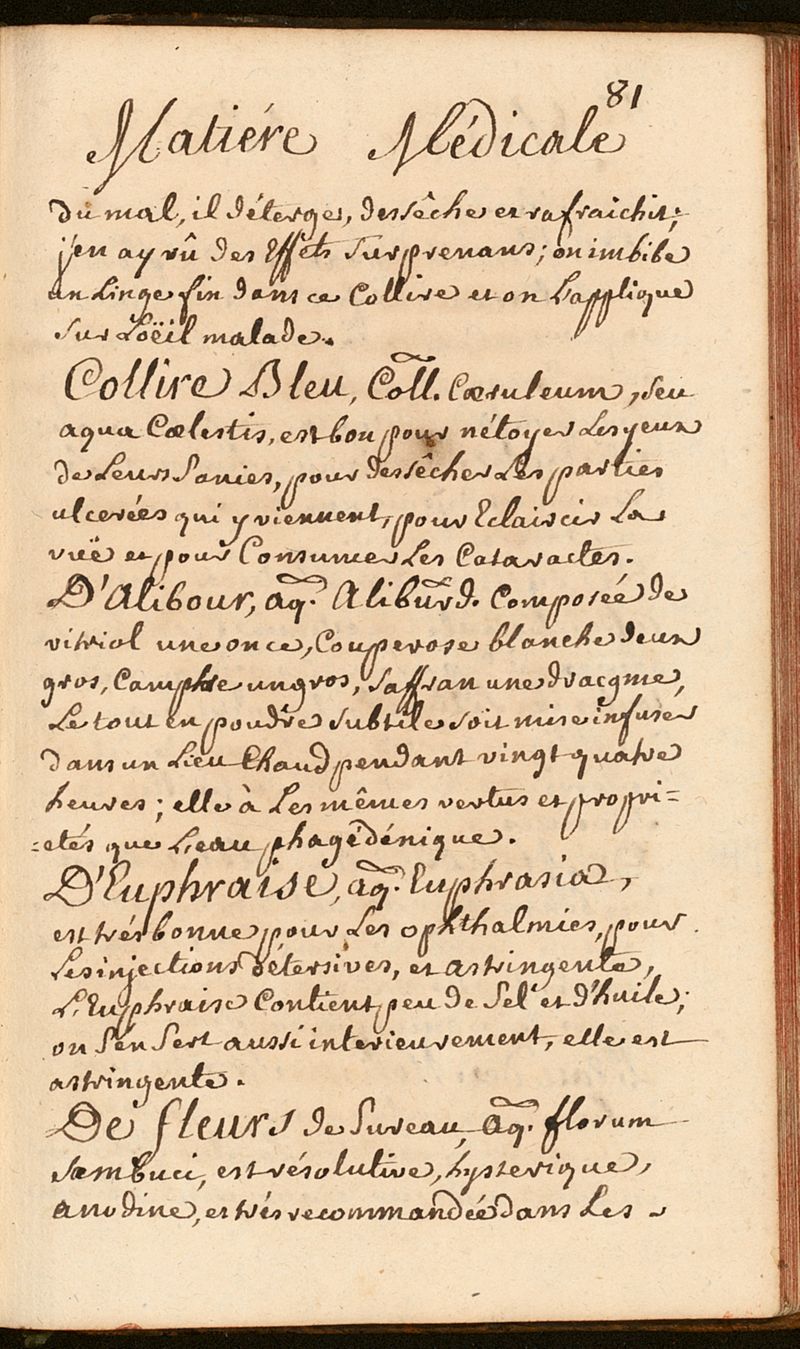 81
Matiére Médicale
du mal, il déterge, dessêche et rafraichit;
j'en ay vû des Effets surprenans; on imbibe
un Linge fin dans ce Collire et on L'applique
sur L'oëil malade.
Collire Bleu, Coll. Cæruleum, seu
aqua Cœlestis, est bon pour nétoyer Les yeux
de Leurs Sanies, pour dessêcher Les parties
ulcerées qui y viennent, pour Eclaircir La
vuë et pour Consumer Les Cataractes.
D'Alibour, aq. Aliburd. Composée de
vitriol une once, Couperose blanche deux
gros, Camphre un gros, Saffran une dracgme,
Le tout en poudre subtile soit mise infuser
dans un Lieu Chaud pendant vingt quatre
heures; elle à Les mêmes vertus et propri=
=etés que L'eau phagédénique.
D'Euphraise, aq. Euphrasia,
est trés bonne pour Les ophthalmies, pour
Les injections détersives, et astringente,
L'Euphraise Contient peu de Sel et d'huile;
on S'en Sert aussi interieurement, elle est
astringente.
De fleurs de Sureau, aq. florum
Sambuci, est résolutive, hysterique,
anodine, et trés recommandée dans Les